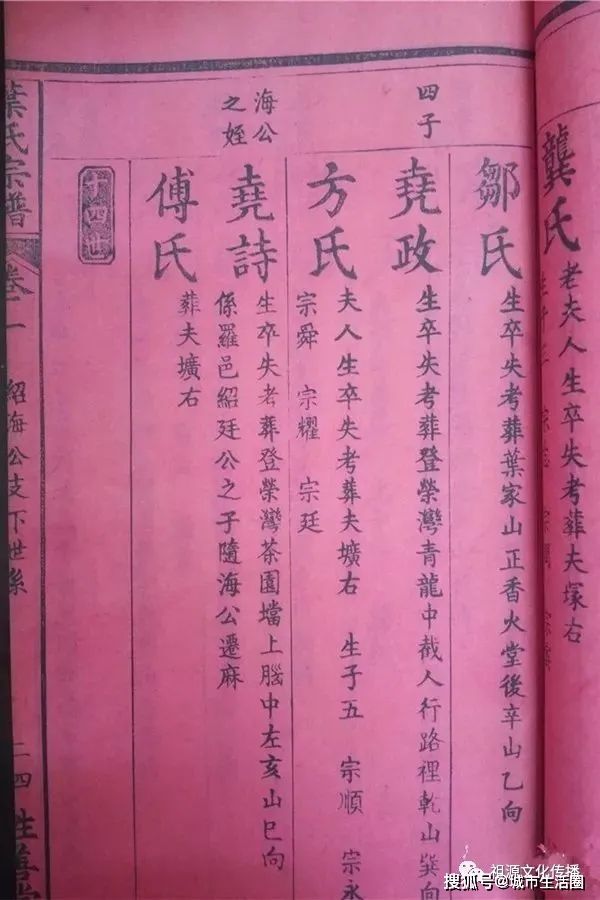 龔氏
老夫人生卒失考葬夫冢右
鄒氏
生卒失考葬葉家山正香火堂後辛山乙向
四子
堯政
生卒失考葬登榮灣青龍中截人行路裡乾山巽向
方氏
夫人生卒失考葬夫壙右 生子五 宗順 宗永
宗舜 宗耀 宗廷
海公
之姪
堯詩
生卒失考葬登榮灣茶園壋上腦中左亥山巳向
係羅邑紹廷公之子隨海公遷麻
傅氏
葬夫壙右
十四世
葉氏宗譜
卷一
紹海公支下世系
二四
性善堂
祖源文化传播
搜狐号@城市生活圈